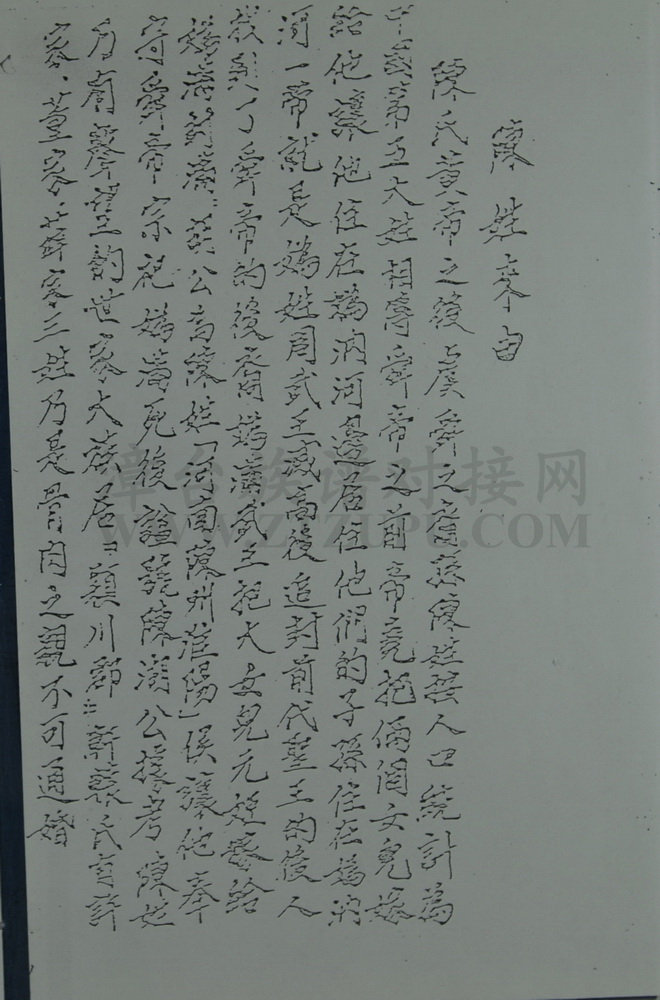 陳姓來由
陳氏黃帝之後虞舜之裔孫陳姓按人口統計為
中國第五大姓相傳舜帝之前帝堯把兩個女兒嫁
給他讓他住在媯汭河邊居住他們的子孫住在媯汭
河一帶就是媯姓周武王滅商後追封前代聖王的後人
找到了舜帝的後裔媯滿武王把大女兒元姬嫁給
媯滿封為胡公為陳姓「河南陳州淮陽」侯讓他奉
守舜帝宗祀媯滿死後謚號陳胡公據考陳姓
乃周 世家大族居"穎川郡" 陳氏有許
三姓乃是骨肉之親不可通婚
漳台族谱对接网
WWW.ZTZUPU.COM